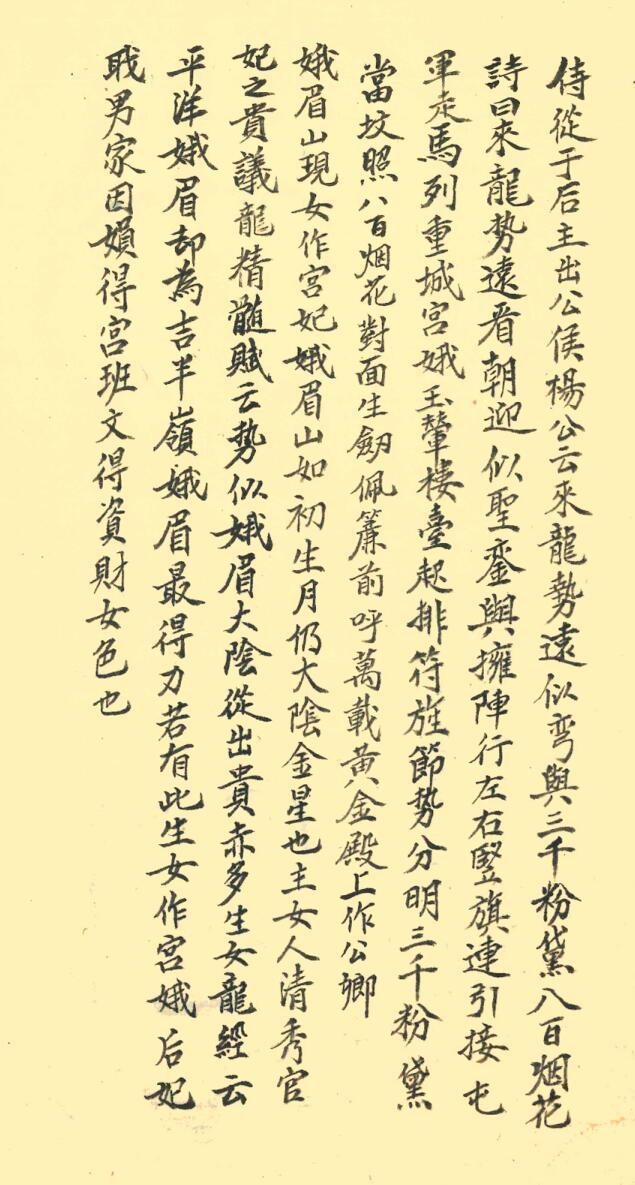 侍從于后主出公侯楊公云來龍勢遠似弯與三千粉黛八百烟花
詩曰來龍勢遠看朝迎似聖鑾與擁陣行左右竪旗連引接屯
軍走馬列重城宮娥玉輦楼臺起排符旌節勢分明三千粉黛
當坟照八百烟花對面生劒佩簾前呼萬載黄金殿上作公卿
娥眉山現女作宮妃娥眉山如初生月仍大陰金星也主女人清秀官
妃之貴議龍精髓賦云勢似娥眉大陰從出貴赤多生女龍經云
平洋娥眉却為吉半嶺娥眉最得力若有此生女作宮娥后妃
戝男家因嬪得宮班文得資財女色也